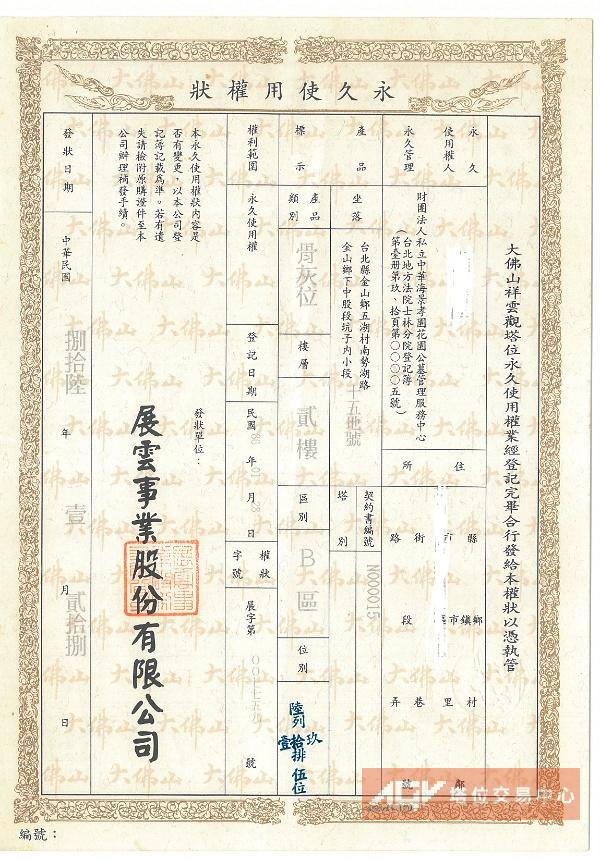 永久使用權狀
大佛山祥雲觀塔位永久使用權業經登記完畢合行發給本權狀以憑執管
永久使用權人
住所
縣市
鄉鎮市區
村里
鄰
街路
段
巷弄
號
永久管理
財團法人私立中華海景孝園花園公墓管理服務中心
(台北地方法院士林分院登記簿
第壹册第玖、拾頁第〇〇〇〇五號)
產品標示
坐落
台北縣金山鄉五湖村南勢湖路
金山鄉下中股段坑子內小段
十五地號
契約書編號
N000015
塔別
產品類別
骨灰位
樓層
貳樓
區別
B區
位別
陸列
玖拾壹排
伍位
權利範圍
永久使用權
登記日期
民國
年
月
日
權狀字號
展字第
號
本永久使用權狀內容是
否有變更,以本公司登
記簿記載為準。若有遺
失請檢附原購證件至本
公司辦理補發手續。
發狀單位:
展雲事業股份有限公司
發狀日期
中華民國
捌拾陸
年
壹
月
貳拾捌
日
編號:
塔位交易中心